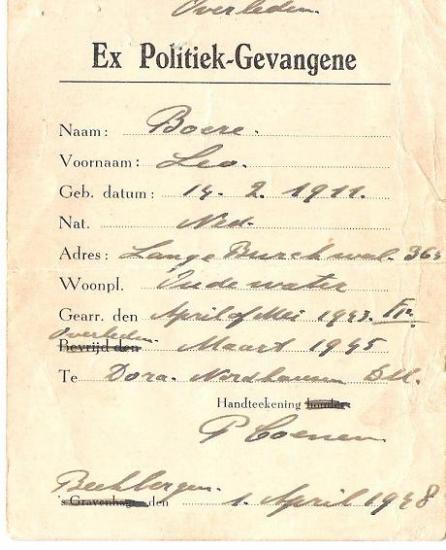 Overleden.
Ex Politiek-Gevangene
Naam: Boere.
Voornaam: Leo.
Geb. datum: 14. 2. 1911.
Nat. Ned.
Adres: Lange Burchwal. 36
Woonpl. Oudewater
Gearr. den April of Mei 1943.
Overleden.
Bevrijd den Maart 1945
Te Dora. Nordhausen
Handteekening houder:
P Coenen
Beekbergen.
's Gravenhage, den 1. April 1948